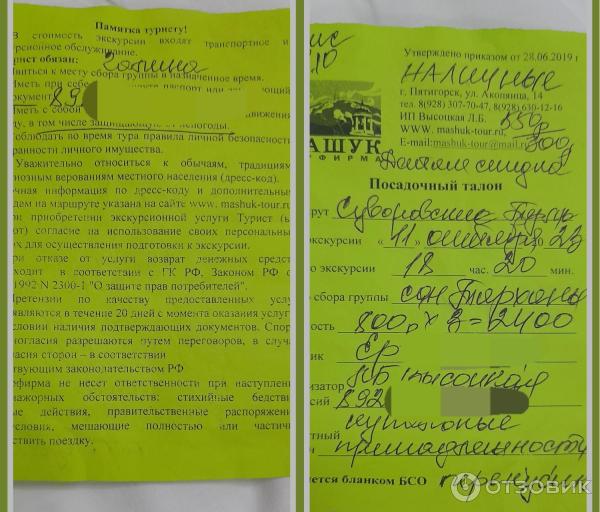 Памятка туристу!
В стоимость экскурсии входят транспортное и
рсионное обслуживание.
рист обязан:
Явиться к месту сбора группы в назначенное время.
Иметь при себе паспорт или
документ 891
Иметь с собой движении
ду, в том числе защищающую от непогоды.
Соблюдать во время тура правила личной безопасности
ранности личного имущества.
Уважительно относиться к обычаям, традициям
иозным верованиям местного населения (дресс-код).
чная информация по дресс-коду и дополнительны
дем на маршруте указана на сайте www. mashuk-tour.ru
ри приобретении экскурсионной услуги Турист (ы
ют) согласие на использование своих персональны
х для осуществления подготовки к экскурсии.
При отказе от услуги возврат денежных средств
ходит в соответствии с ГК РФ, Законом РФ о
1992 N 2300-1 "О защите прав потребителей".
Претензии по качеству предоставленных услу
являются в течение 20 дней с момента оказания услуг
словии наличия подтверждающих документов. Спор
ногласия разрешаются путем переговоров, в случа
ласия сторон – в соответствии
твующим законодательством РФ
рефирма не несет ответственности при наступлени
мажорных обстоятельств: стихийные бедстви
ые действия, правительственные распоряжени
словия, мешающие полностью или частичн
ствить поездку.
Утверждено приказом от 28.06.2019 г
НАЛИЧНЫЕ
г. Пятигорск, ул. Акопянца, 14
тел. 8(928) 307-70-47, 8(928) 630-12-16
ИП Высоцкая Л.Б.
WWW. mashuk-tour.ru
E-mail:mashuk-tour@mail.ru
850р
800р
АШУК
ФИРМА
скидка
Посадочный талон
рут Суворовские Термы
экскурсии «11» октября 20 23
о экскурсии 18 час. 20 мин.
о сбора группы сан Тарханы
ость 800р х 3 = 2400
ик Ср
низатор ЛБ Высоцкая
сий 892
купальные
принадлежности
яется бланком БСО
ОТЗОВИК